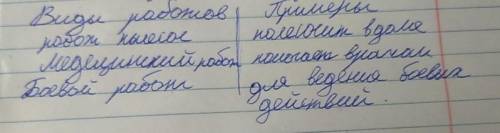 Виды работов Примеры
робот пылесос полесосит в доме
медецинский робот помогает врачам
Боевой работ для ведения боевых
действий.